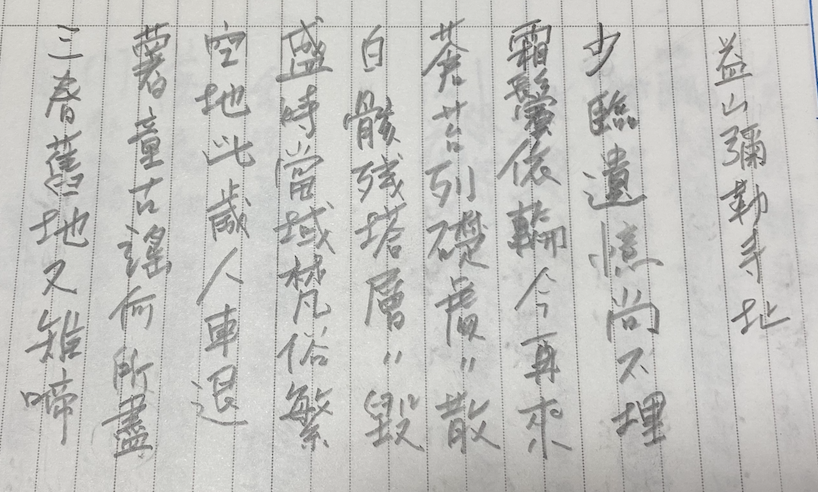 益山彌勒寺址
少臨遺憶尚不埋
霜鬢依輪今再來
蒼苔列礎處〃散
白骸残塔層〃毀
盛時當域梵俗繁
空地此歲人車退
薯童古謠何所盡
三春舊地又雉啼